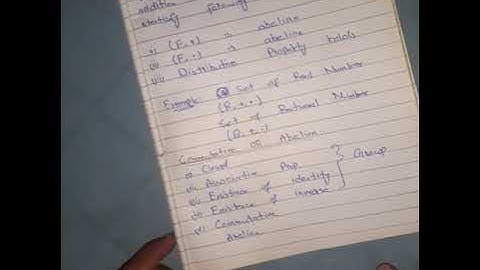 addition
satisfy following
i) (F, +) is abelian
ii) (F, ·) is abelian
iii) Distributive Property holds
Example Set of Real Number
(R, +, ·)
Set of Rational Number
(Q, +, ·)
Commutative OR Abelian
i) Closed
ii) Associative Prop
iii) Existence of identity
iv) Existence of inverse
Group
v) Commutative
Abelian